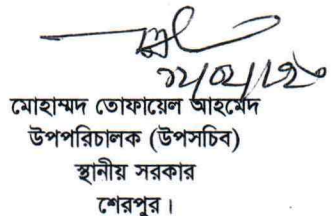 ১২/০২/২০
মোহাম্মদ তোফায়েল আহমেদ
উপপরিচালক (উপসচিব)
স্থানীয় সরকার
শেরপুর।